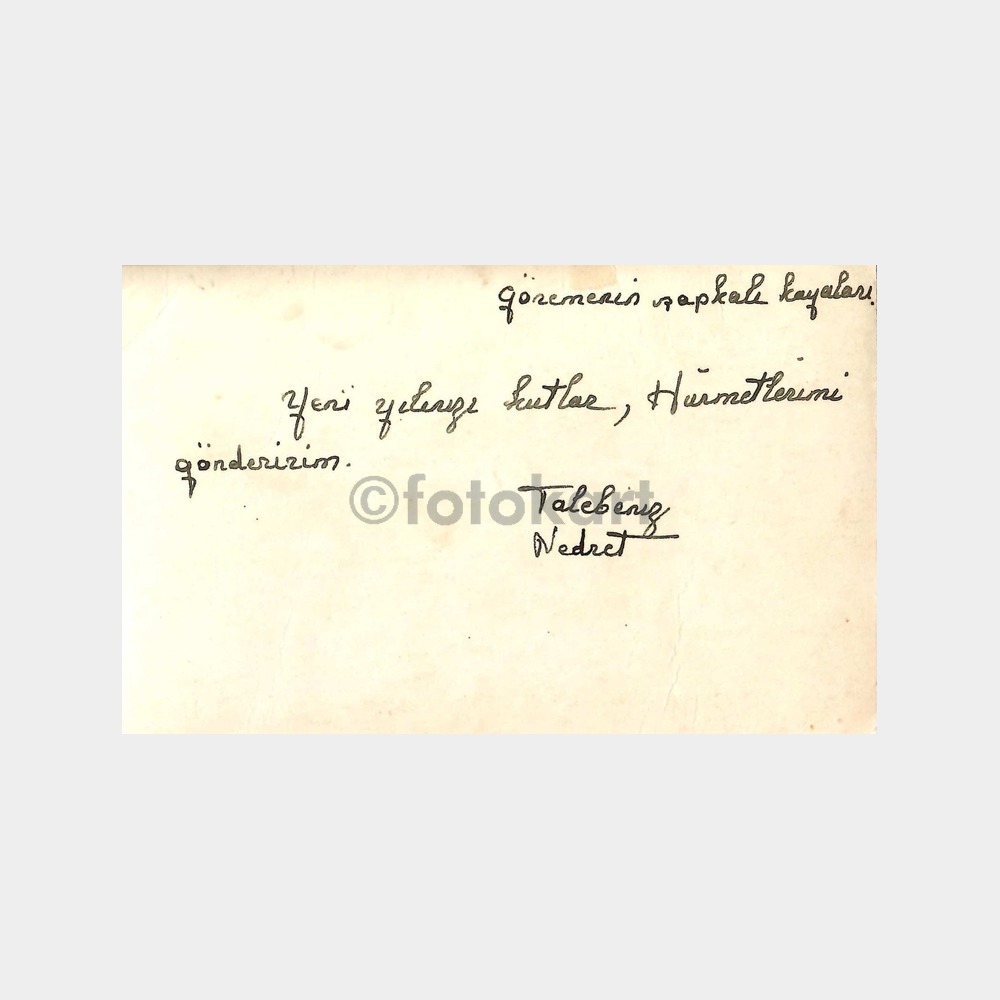 Göremenin şapkalı kayaları.
Yeni yılınızı kutlar, Hürmetlerimi
gönderirim.
©fotokart
Talebeniz
Nedret